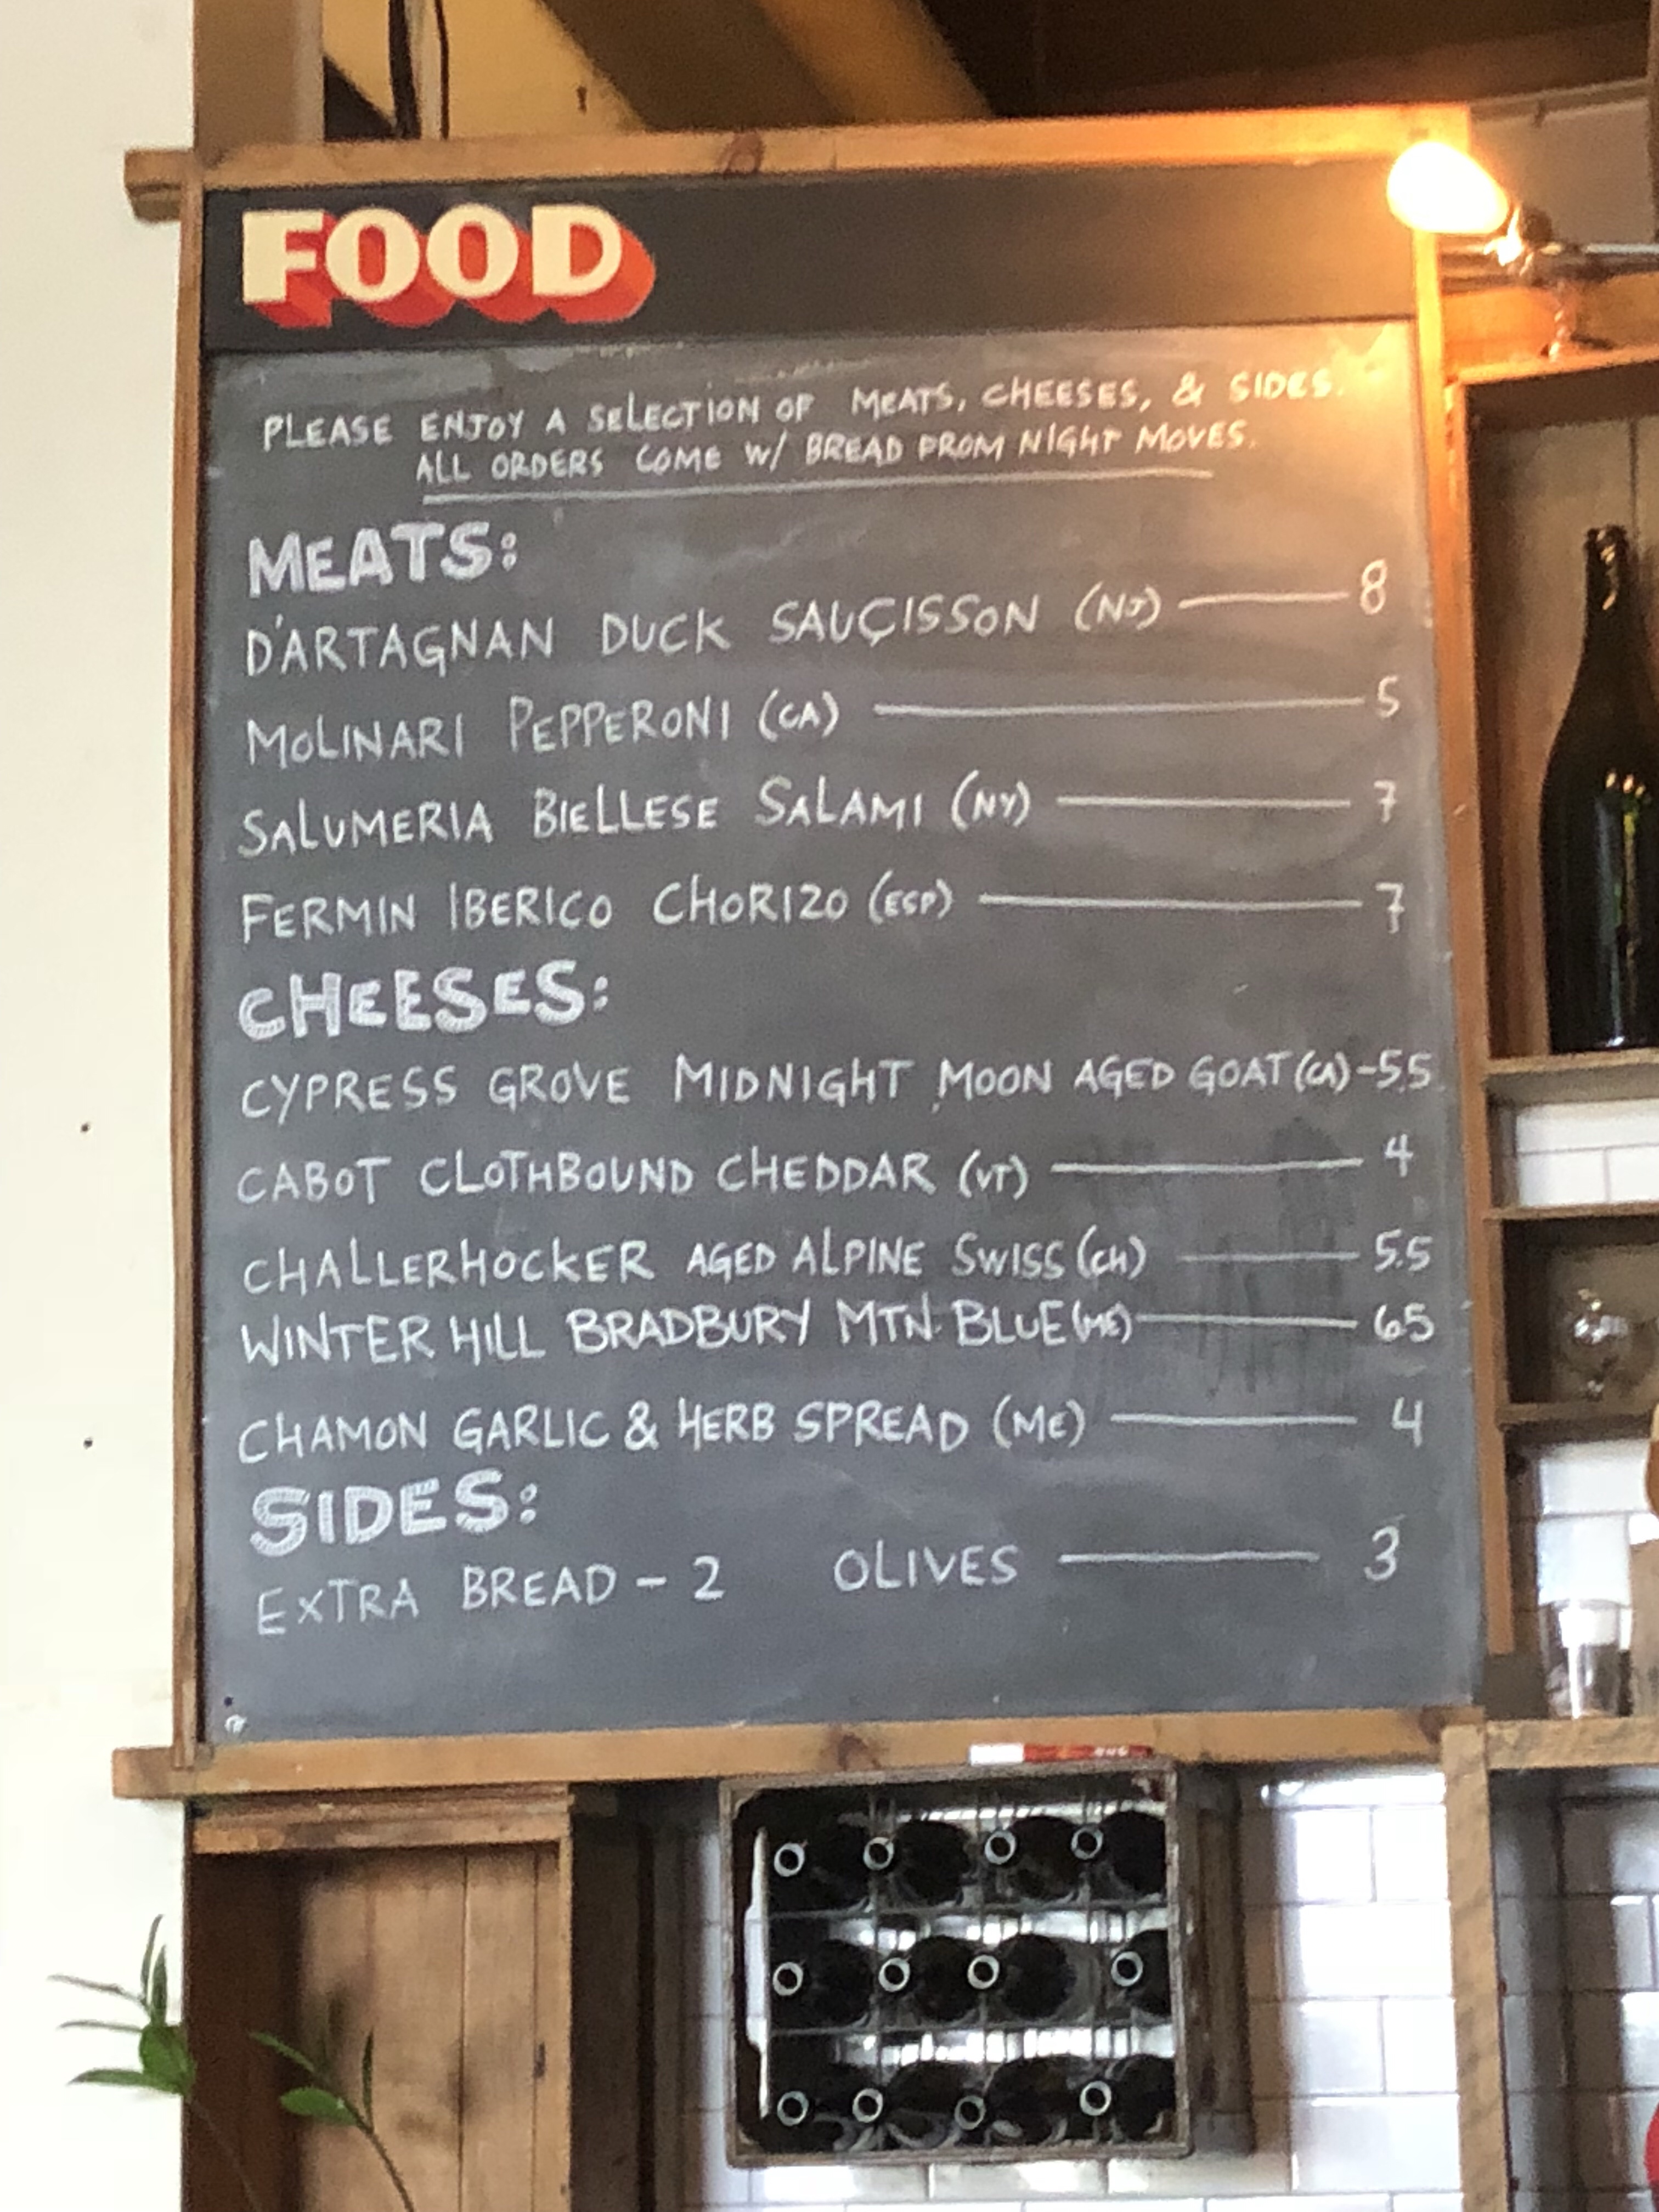 FOOD
PLEASE ENJOY A SELECTION OF MEATS, CHEESES, & SIDES.
ALL ORDERS COME W/ BREAD FROM NIGHT MOVES.
MEATS:
D'ARTAGNAN DUCK SAUÇISSON (NJ) — 8
MOLINARI PEPPERONI (CA) — 5
SALUMERIA BIELLESE SALAMI (NY) — 7
FERMIN IBERICO CHORIZO (ESP) — 7
CHEESES:
CYPRESS GROVE MIDNIGHT MOON AGED GOAT (CA) - 5.5
CABOT CLOTHBOUND CHEDDAR (VT) — 4
CHALLERHOCKER AGED ALPINE SWISS (CH) — 5.5
WINTER HILL BRADBURY MTN. BLUE (ME) — 6.5
CHAMON GARLIC & HERB SPREAD (ME) — 4
SIDES:
EXTRA BREAD - 2 OLIVES — 3